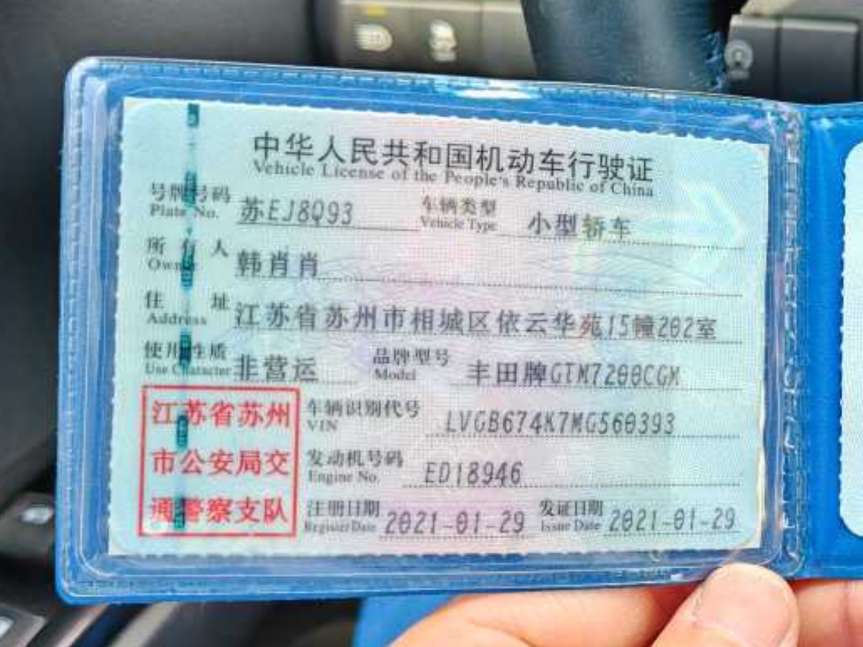 中华人民共和国机动车行驶证
Vehicle License of the People's Republic of China
号牌号码 苏EJ8Q93 车辆类型 小型轿车
Plate No. Vehicle Type
所有人 韩肖肖
Owner
住址 江苏省苏州市相城区依云华苑15幢202室
Address
使用性质 非营运 品牌型号 丰田牌GTM7200CGM
Use Character Model
江苏省苏州
市公安局交
通警察支队
车辆识别代号 LVGB674K7MG560393
VIN
发动机号码 ED18946
Engine No.
注册日期 2021-01-29 发证日期 2021-01-29
Register Date Issue Date